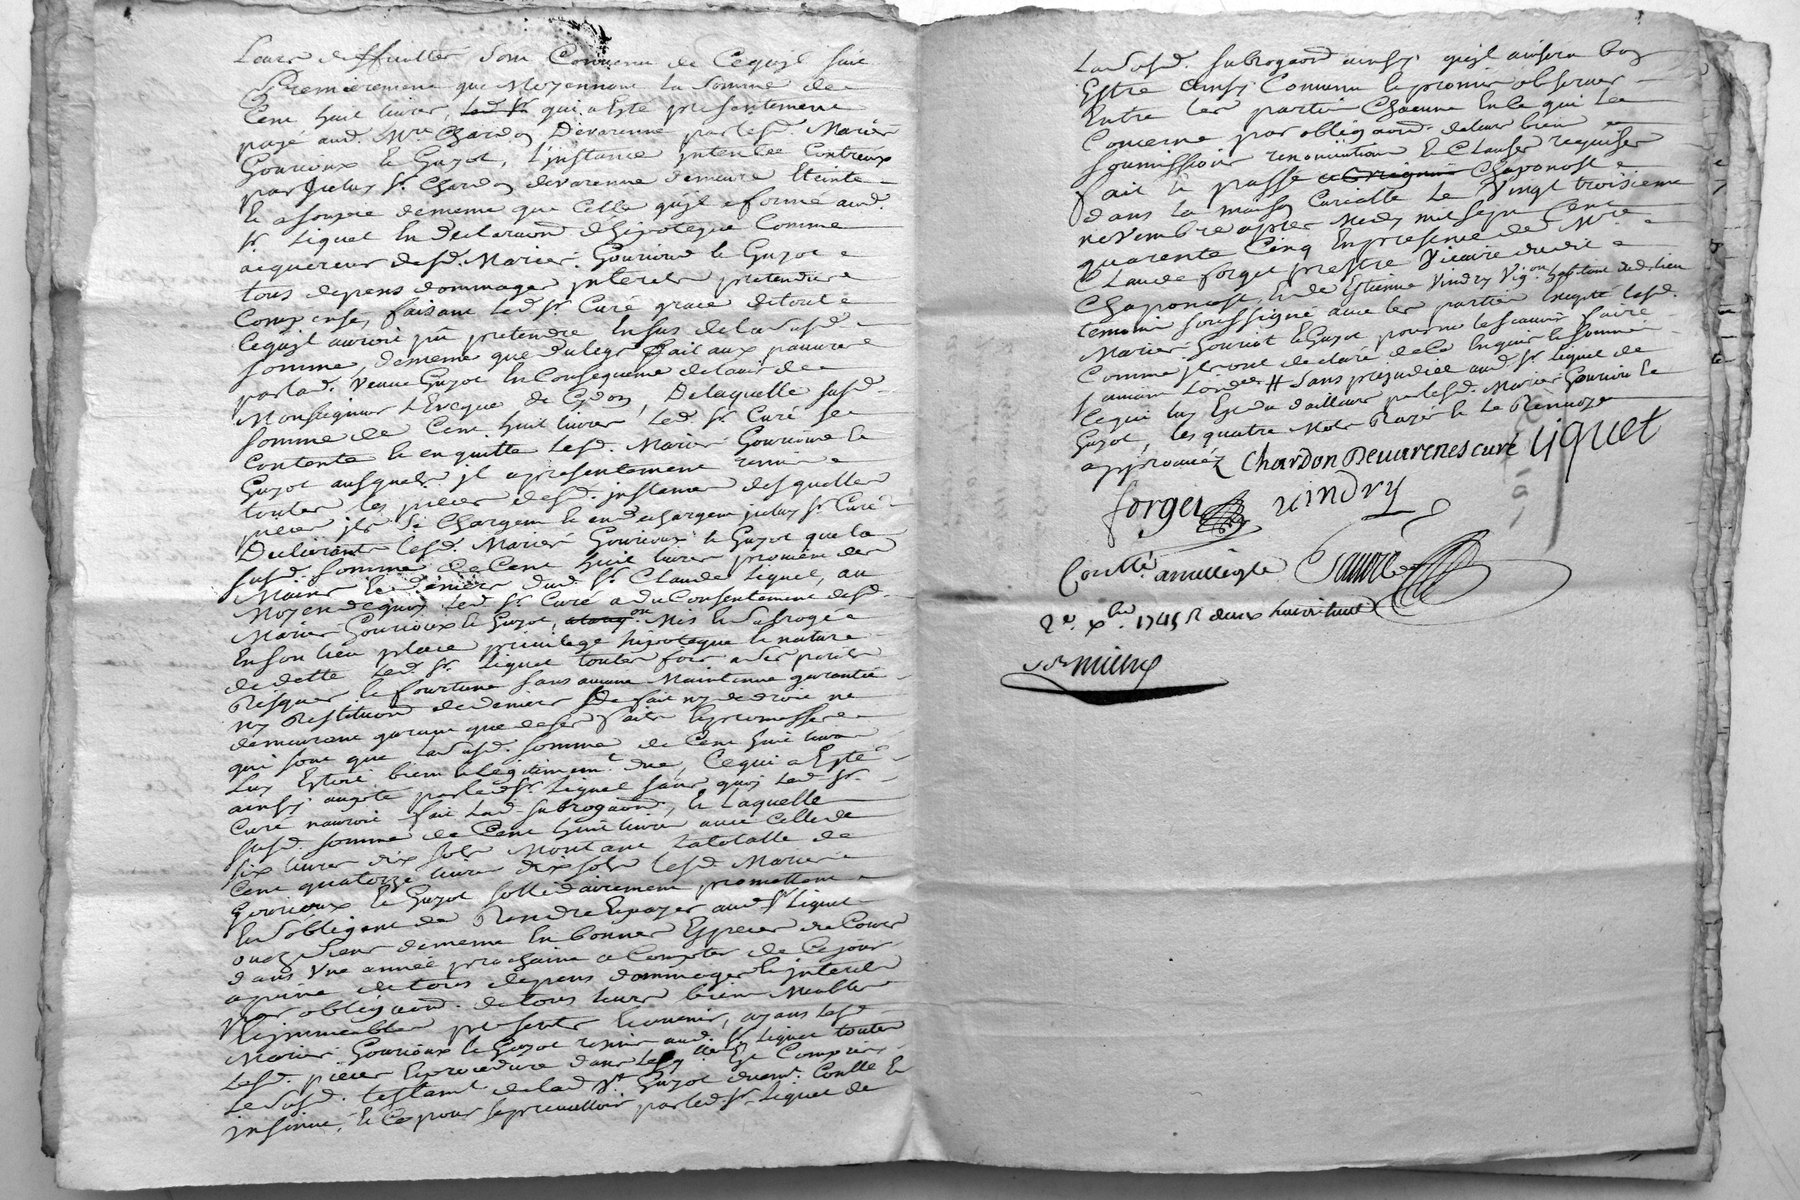 Leurs difficultés sont Convenu de Cequil suit
Premierement que Moyennant la somme de
Cent huit livres, qui a Esté presentement
payé aud. Mre Chardon Devarenne par lesd. Mariés
Gourioux et Guyot, l'instance intentée Contreux
par Iceluy Sr. Chardon devarenne demeure Eteinte
Et assoupie demême que Celle quil a formé aud.
Sr. Liquet En declaraon d'hipoteque Comme
acquereur desd. Mariés Gourioux et Guyot
tous depens dommages interets pretendus
Compensés, faisant led. Sr. Curé grace de tout
Cequil auroit pû pretendre En sus de lasusd.
somme, demême que du legs fait aux pauvres
par lad. veuve Guyot En Consequence de lavis de
Monseigneur L'Eveque de Lyon, De laquelle susd.
somme de Cent huit livres led. Sr. Curé se
Contente et en quitte lesd. Mariés Gourioux et
Guyot ausquels il a presentement remis
toutes les pieces desd. instances desquelles
pieces ils se Chargent et en dechargent iceluy Sr. Curé
Declarant lesd. Mariés Gourioux et Guyot que la
susd. somme de Cent huit livres provient des
Mains et deniers dud. Sr. Claude Liquet, au
Moyen dequoy led. Sr. Curé a du Consentement desd.
Mariés Gourioux et Guyot, Mis et subrogé
En son lieu place privilege hipoteque et nature
de dette led. Sr. Liquet toutes fois a ses perils
Risques et fortune sans aucune Maintenue garantie
ny Restituon de deniers De fait ny de droit ne
demeurant garant que de ses faits et promesses
qui sont que lasusd. somme de Cent huit livres
luy Estoit bien et legitimemt. due, Cequi a Esté
ainsy accepté par led. Sr. Liquet sans quoy led. Sr.
Curé nauroit fait lad. subrogaon, Et laquelle
susd. somme de Cent huit livres avec Celle de
six livres dix sols Montant la totalle de
Cent quatorze livres dix sols lesd. Mariés
Gourioux et Guyot sollidairement promettent
Et s'obligent de Rendre Et payer aud. Sr. Liquet
ou aux siens demême En bonnes Especes de Cours
dans Une année prochaine a Compter de Cejour
a peine de tous depens dommages et interets
par obligaon. de tous leurs biens Meubles
Et immeubles presents Et avenir, ayant lesd.
Mariés Gourioux et Guyot remis aud. Sr. Liquet toutes
lesd. pieces Et procedure dans lesquelles Est Compris
le susd. testamt. de lad. ve. Guyot duemt. Conllé Et
insinué, Et Ce pour se prevalloir par led. Sr. Liquet de
Lasusd. subrogaon ainsy quil avisera bon
Estre ainsy Convenu et promis observer
Entre les parties Chacune En Ce qui les
Concerne par obligaon. de leurs biens
soumissions renonciaon et Clauses requises
fait et passé Chaponost
dans la maison Curialle le Vingt troisieme
novembre apres Midy mil sept Cent
quarente Cinq En presence de Mre.
Claude forget prestre Vicaire dudit
Chaponost, Et de Estienne Vindry Vigon. habitant dud. lieu
temoins soussignés avec les parties Excepté lesd.
Mariés Gouriot et Guyot pour ne le scavoir faire
Comme ils ont declaré de Ce Enquis et sommés
Cequi luy Est du d'ailleurs par lesd. Mariés Gourioux et
Guyot, les quatre Mots Rayés et le Renvoye
approuvéz Chardon Devarenes curé Liquet
forget vindry
Conllé
Xbre. 1745